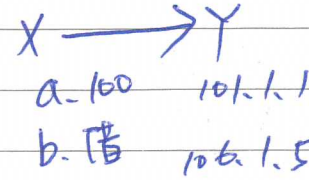 X → Y
a. 100 101.1.1
b. 借 106.1.5